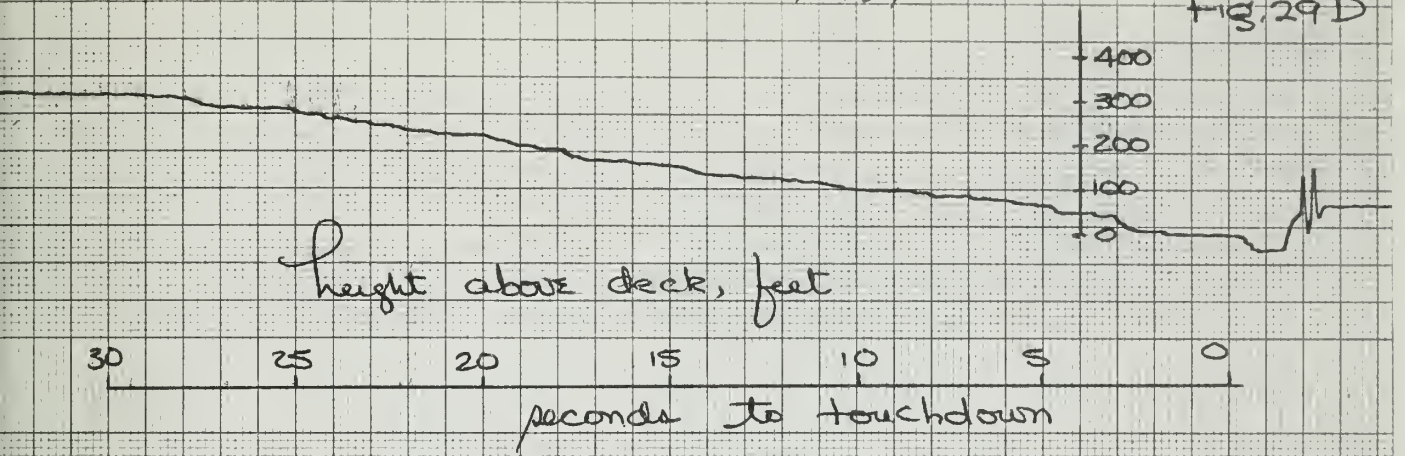 Fig. 29 D
400
300
200
100
0
height above deck, feet
30 25 20 15 10 5 0
seconds to touchdown